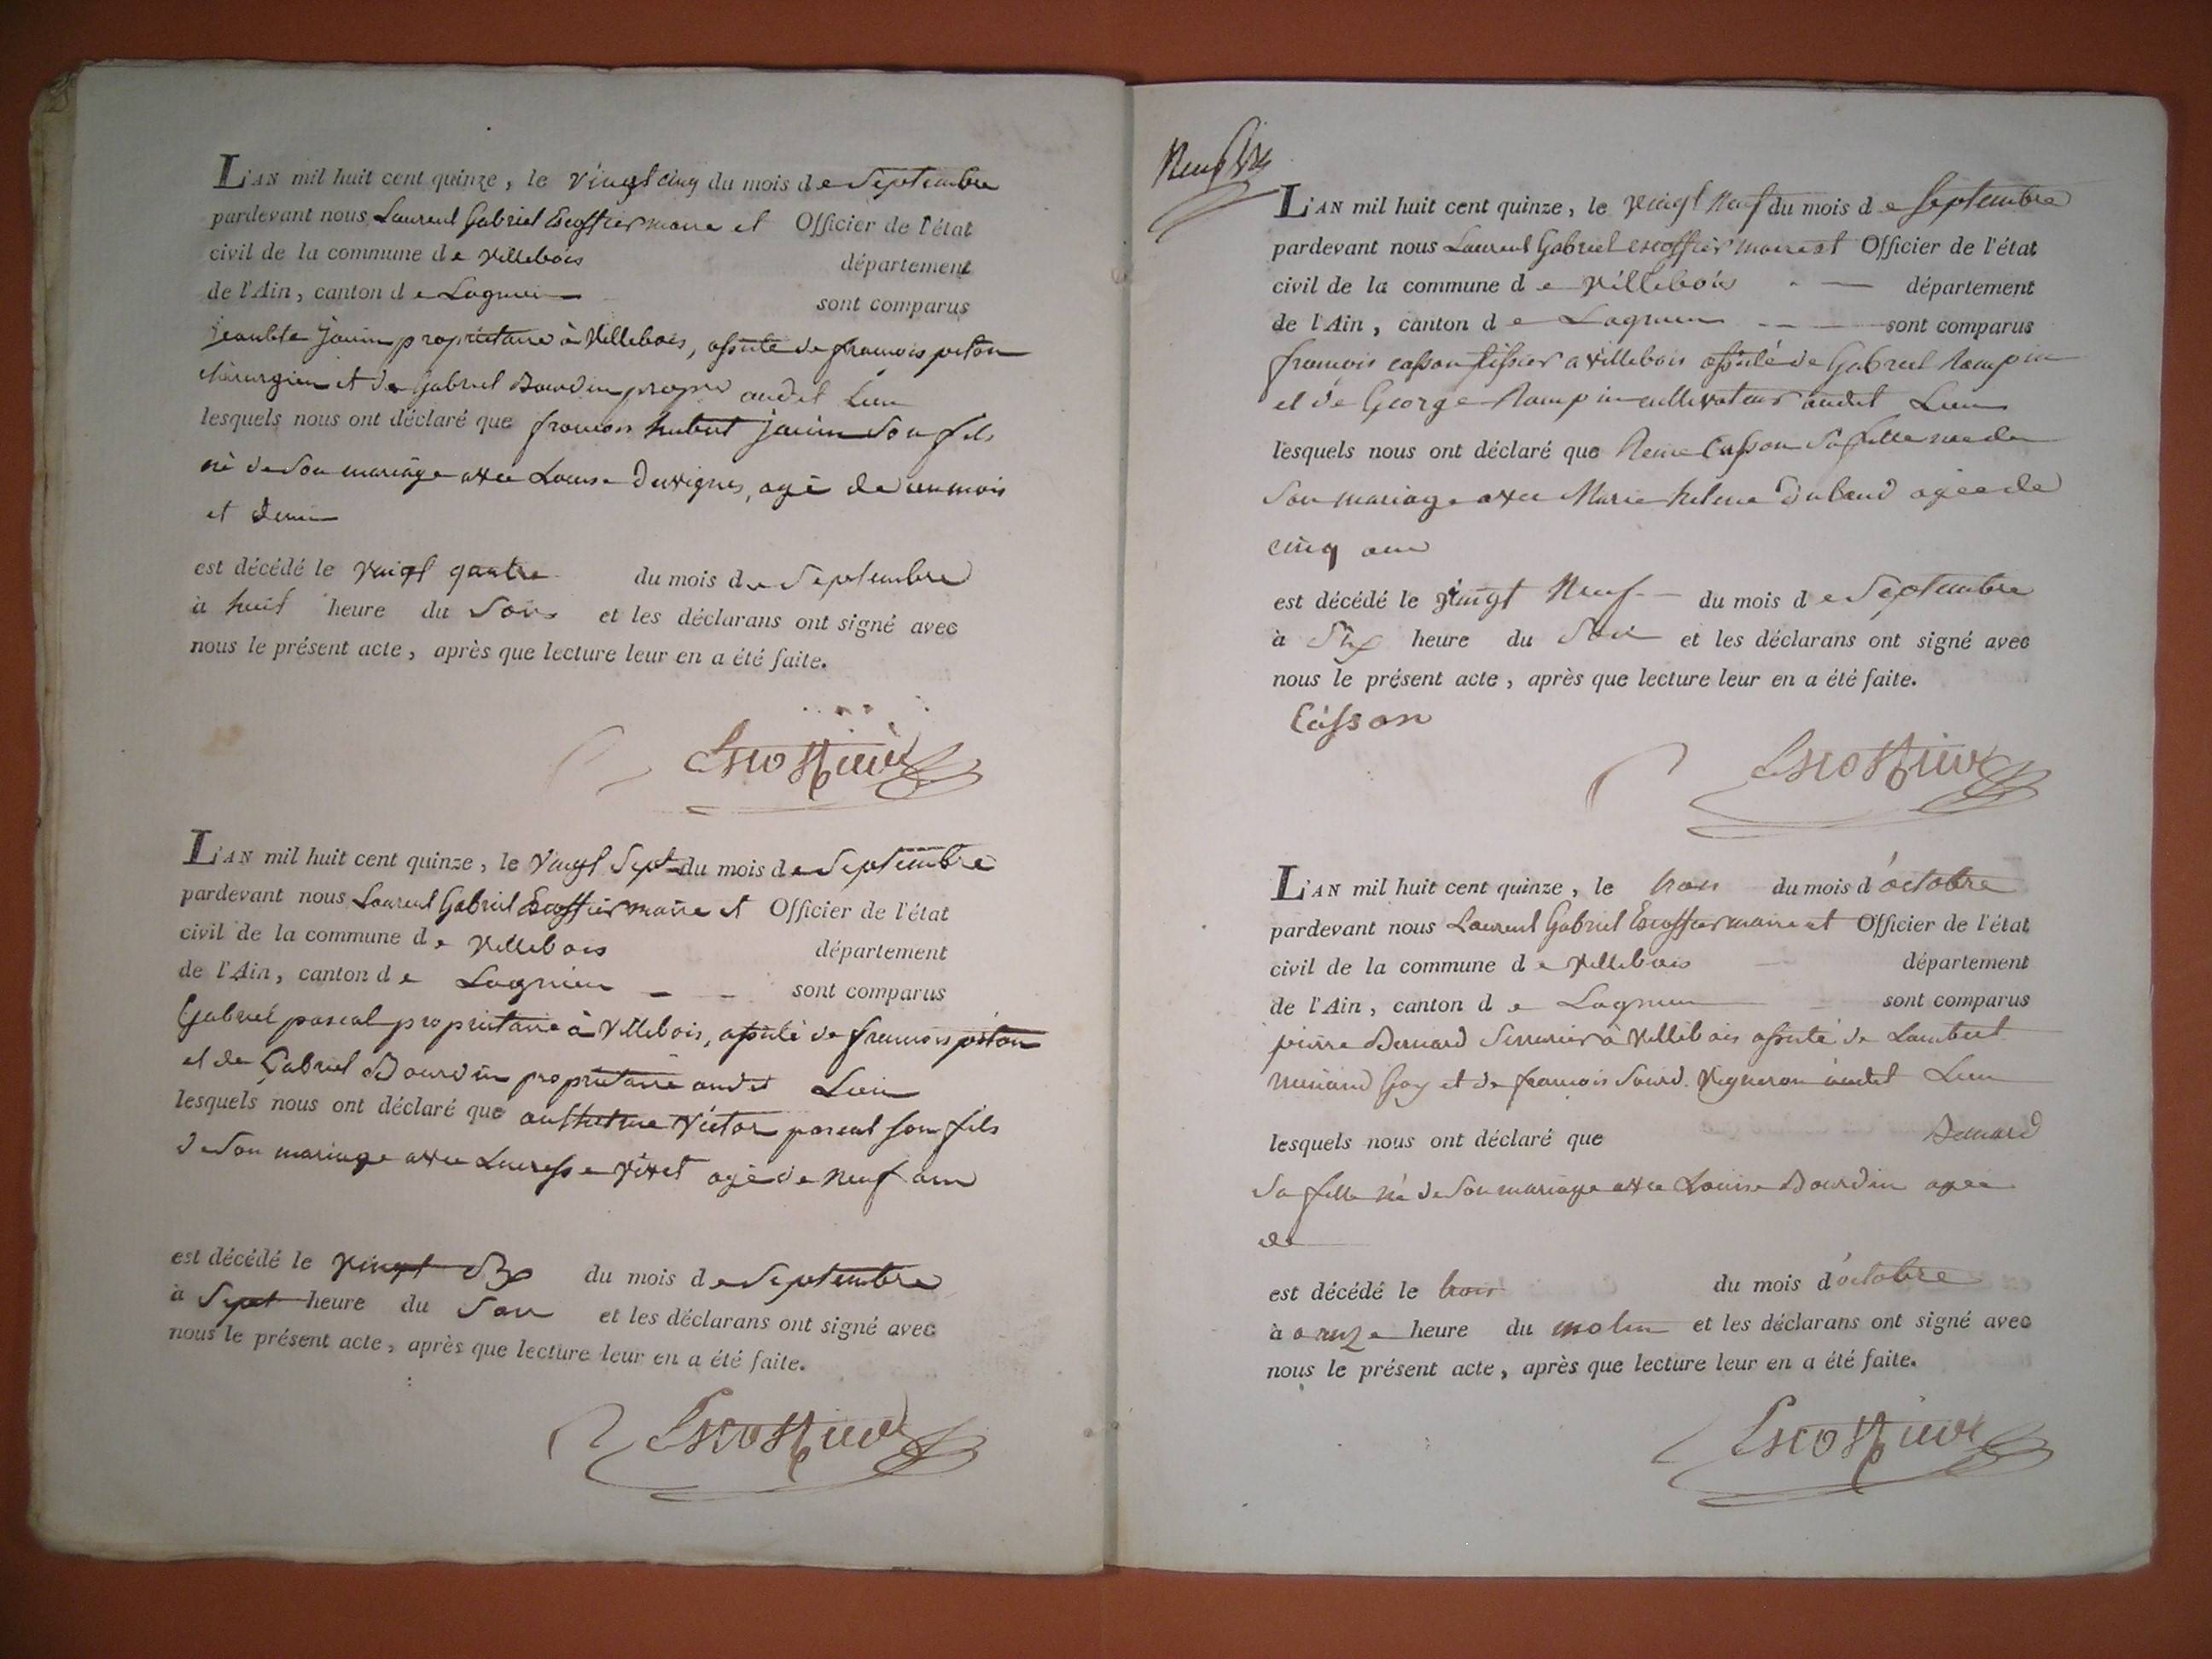 L'AN mil huit cent quinze, le vingt cinq du mois de Septembre
pardevant nous Laurent Gabriel Escoffier maire et Officier de l'état
civil de la commune de villebois département
de l'Ain, canton de Lagnieu sont comparus
jeanbte janin proprietaire à Villebois, assisté de francois piton
chirurgien et de Gabriel Bourdin propre audit Lieu
lesquels nous ont déclaré que francois hubert janin Son fils
né de Son mariage avec Louise Duvignes, agé de un mois
et demi
est décédé le vingt quatre du mois de Septembre
à huit heure du Soir et les déclarans ont signé avec
nous le présent acte, après que lecture leur en a été faite.
Escoffier
L'AN mil huit cent quinze, le vingt Sept du mois de Septembre
pardevant nous Laurent Gabriel Escoffier maire et Officier de l'état
civil de la commune de villebois département
de l'Ain, canton de Lagnieu sont comparus
Gabriel pascal proprietaire à Villebois, assisté de francois piton
et de Gabriel Bourdin proprietaire audit Lieu
lesquels nous ont déclaré que Victor pascal son fils
de Son mariage avec Lucresse vivet agé de neuf ans
est décédé le vingt Six du mois de Septembre
à Sept heure du Soir et les déclarans ont signé avec
nous le présent acte, après que lecture leur en a été faite.
Escoffier
L'AN mil huit cent quinze, le vingt Neuf du mois de Septembre
pardevant nous Laurent Gabriel escoffier maire et Officier de l'état
civil de la commune de villebois département
de l'Ain, canton de Lagnieu sont comparus
francois casson tissier a villebois assisté de Gabriel Rampin
et de George Rampin cultivateurs audit Lieu
lesquels nous ont déclaré que Reine Casson Sa fille née de
Son mariage avec Marie helene Duland agée de
cinq ans
est décédé le vingt Neuf du mois de Septembre
à Six heure du Soir et les déclarans ont signé avec
nous le présent acte, après que lecture leur en a été faite.
Casson
Escoffier
L'AN mil huit cent quinze, le trois du mois d'octobre
pardevant nous Laurent Gabriel Escoffier maire et Officier de l'état
civil de la commune de Villebois département
de l'Ain, canton de Lagnieu sont comparus
pierre Bernard Serrurier à Villebois assisté de Lambert
Guy et de francois Sourd Vigneron audit Lieu
lesquels nous ont déclaré que Bernard
Sa fille né de Son mariage avec Louise Bourdin agée
de
est décédé le trois du mois d'octobre
à onze heure du matin et les déclarans ont signé avec
nous le présent acte, après que lecture leur en a été faite.
Escoffier